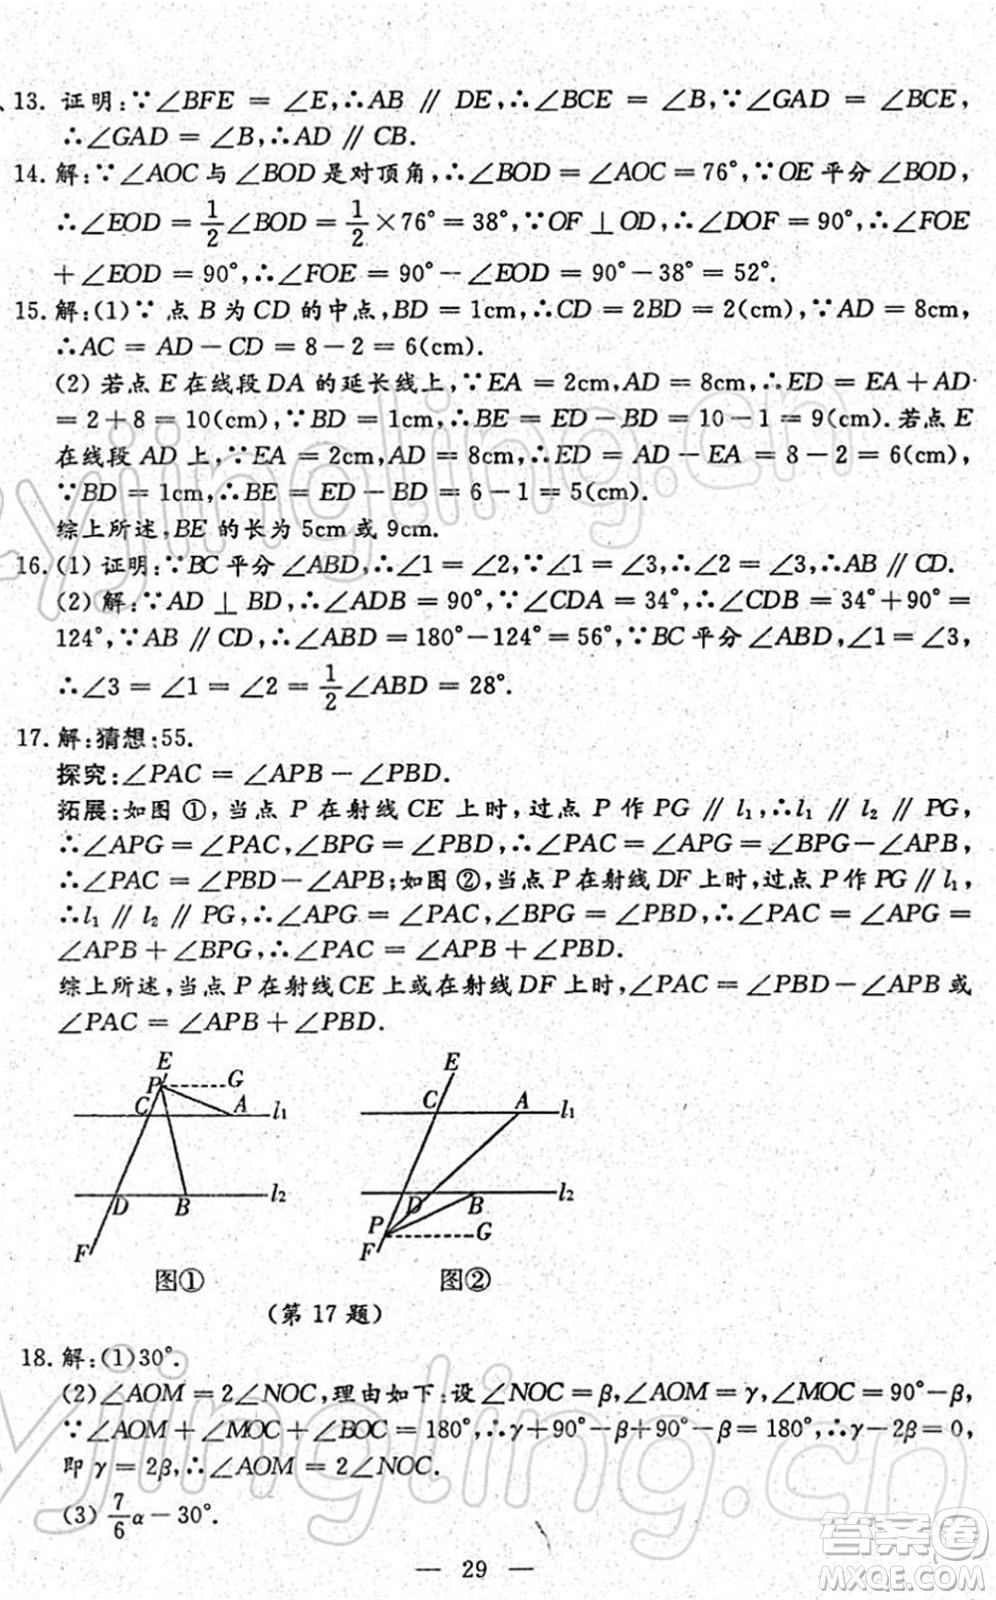 13. 证明:∵∠BFE = ∠E,∴AB ∥ DE,∴∠BCE = ∠B,∵∠GAD = ∠BCE,
∴∠GAD = ∠B,∴AD ∥ CB.
14. 解:∵∠AOC与∠BOD是对顶角,∴∠BOD = ∠AOC = 76°,∵OE平分∠BOD,
∴∠EOD = 1/2∠BOD = 1/2×76° = 38°,∵OF⊥OD,∴∠DOF = 90°,∴∠FOE
+∠EOD = 90°,∴∠FOE = 90°-∠EOD = 90°-38° = 52°.
15. 解:(1)∵点B为CD的中点,BD = 1cm,∴CD = 2BD = 2(cm),∵AD = 8cm,
∴AC = AD-CD = 8-2 = 6(cm).
(2) 若点E在线段DA的延长线上,∵EA = 2cm,AD = 8cm,∴ED = EA+AD
= 2+8 = 10(cm),∵BD = 1cm,∴BE = ED-BD = 10-1 = 9(cm).若点E
在线段AD上,∵EA = 2cm,AD = 8cm,∴ED = AD-EA = 8-2 = 6(cm),
∵BD = 1cm,∴BE = ED-BD = 6-1 = 5(cm).
综上所述,BE的长为5cm或9cm.
16. (1) 证明:∵BC平分∠ABD,∴∠1 = ∠2,∵∠1 = ∠3,∴∠2 = ∠3,∴AB∥CD.
(2) 解:∵AD⊥BD,∴∠ADB = 90°,∵∠CDA = 34°,∴∠CDB = 34°+90° =
124°,∵AB∥CD,∴∠ABD = 180°-124° = 56°,∵BC平分∠ABD,∠1 = ∠3,
∴∠3 = ∠1 = ∠2 = 1/2∠ABD = 28°.
17. 解:猜想:55.
探究:∠PAC = ∠APB-∠PBD.
拓展:如图①,当点P在射线CE上时,过点P作PG∥l₁,∴l₁∥l₂∥PG,
∴∠APG = ∠PAC,∠BPG = ∠PBD,∴∠PAC = ∠APG = ∠BPG-∠APB,
∴∠PAC = ∠PBD-∠APB;如图②,当点P在射线DF上时,过点P作PG∥l₁,
∴l₁∥l₂∥PG,∴∠APG = ∠PAC,∠BPG = ∠PBD,∴∠PAC = ∠APG =
∠APB+∠BPG,∴∠PAC = ∠APB+∠PBD.
综上所述,当点P在射线CE上或在射线DF上时,∠PAC = ∠PBD-∠APB或
∠PAC = ∠APB+∠PBD.
E
P G
C A l₁
D B l₂
F
图①
E
C A l₁
D B l₂
P G
F
图②
(第17题)
18. 解:(1)30°.
(2)∠AOM = 2∠NOC,理由如下:设∠NOC = β,∠AOM = γ,∠MOC = 90°-β,
∵∠AOM+∠MOC+∠BOC = 180°,∴γ+90°-β+90°-β = 180°,∴γ-2β = 0,
即γ = 2β,∴∠AOM = 2∠NOC.
(3) 7/6α-30°.
— 29 —
答案圈
MXQE.COM
yjingling.cn
yjingling.cn